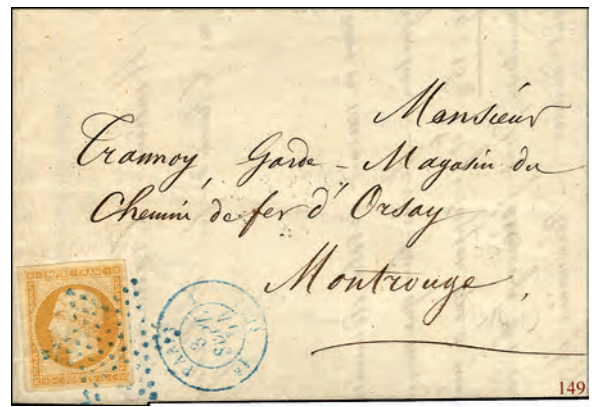 Monsieur
Trannoy, Garde-Magasin du
Chemin de fer d'Orsay
Montrouge,
EMPIRE FRANC
PARIS
149